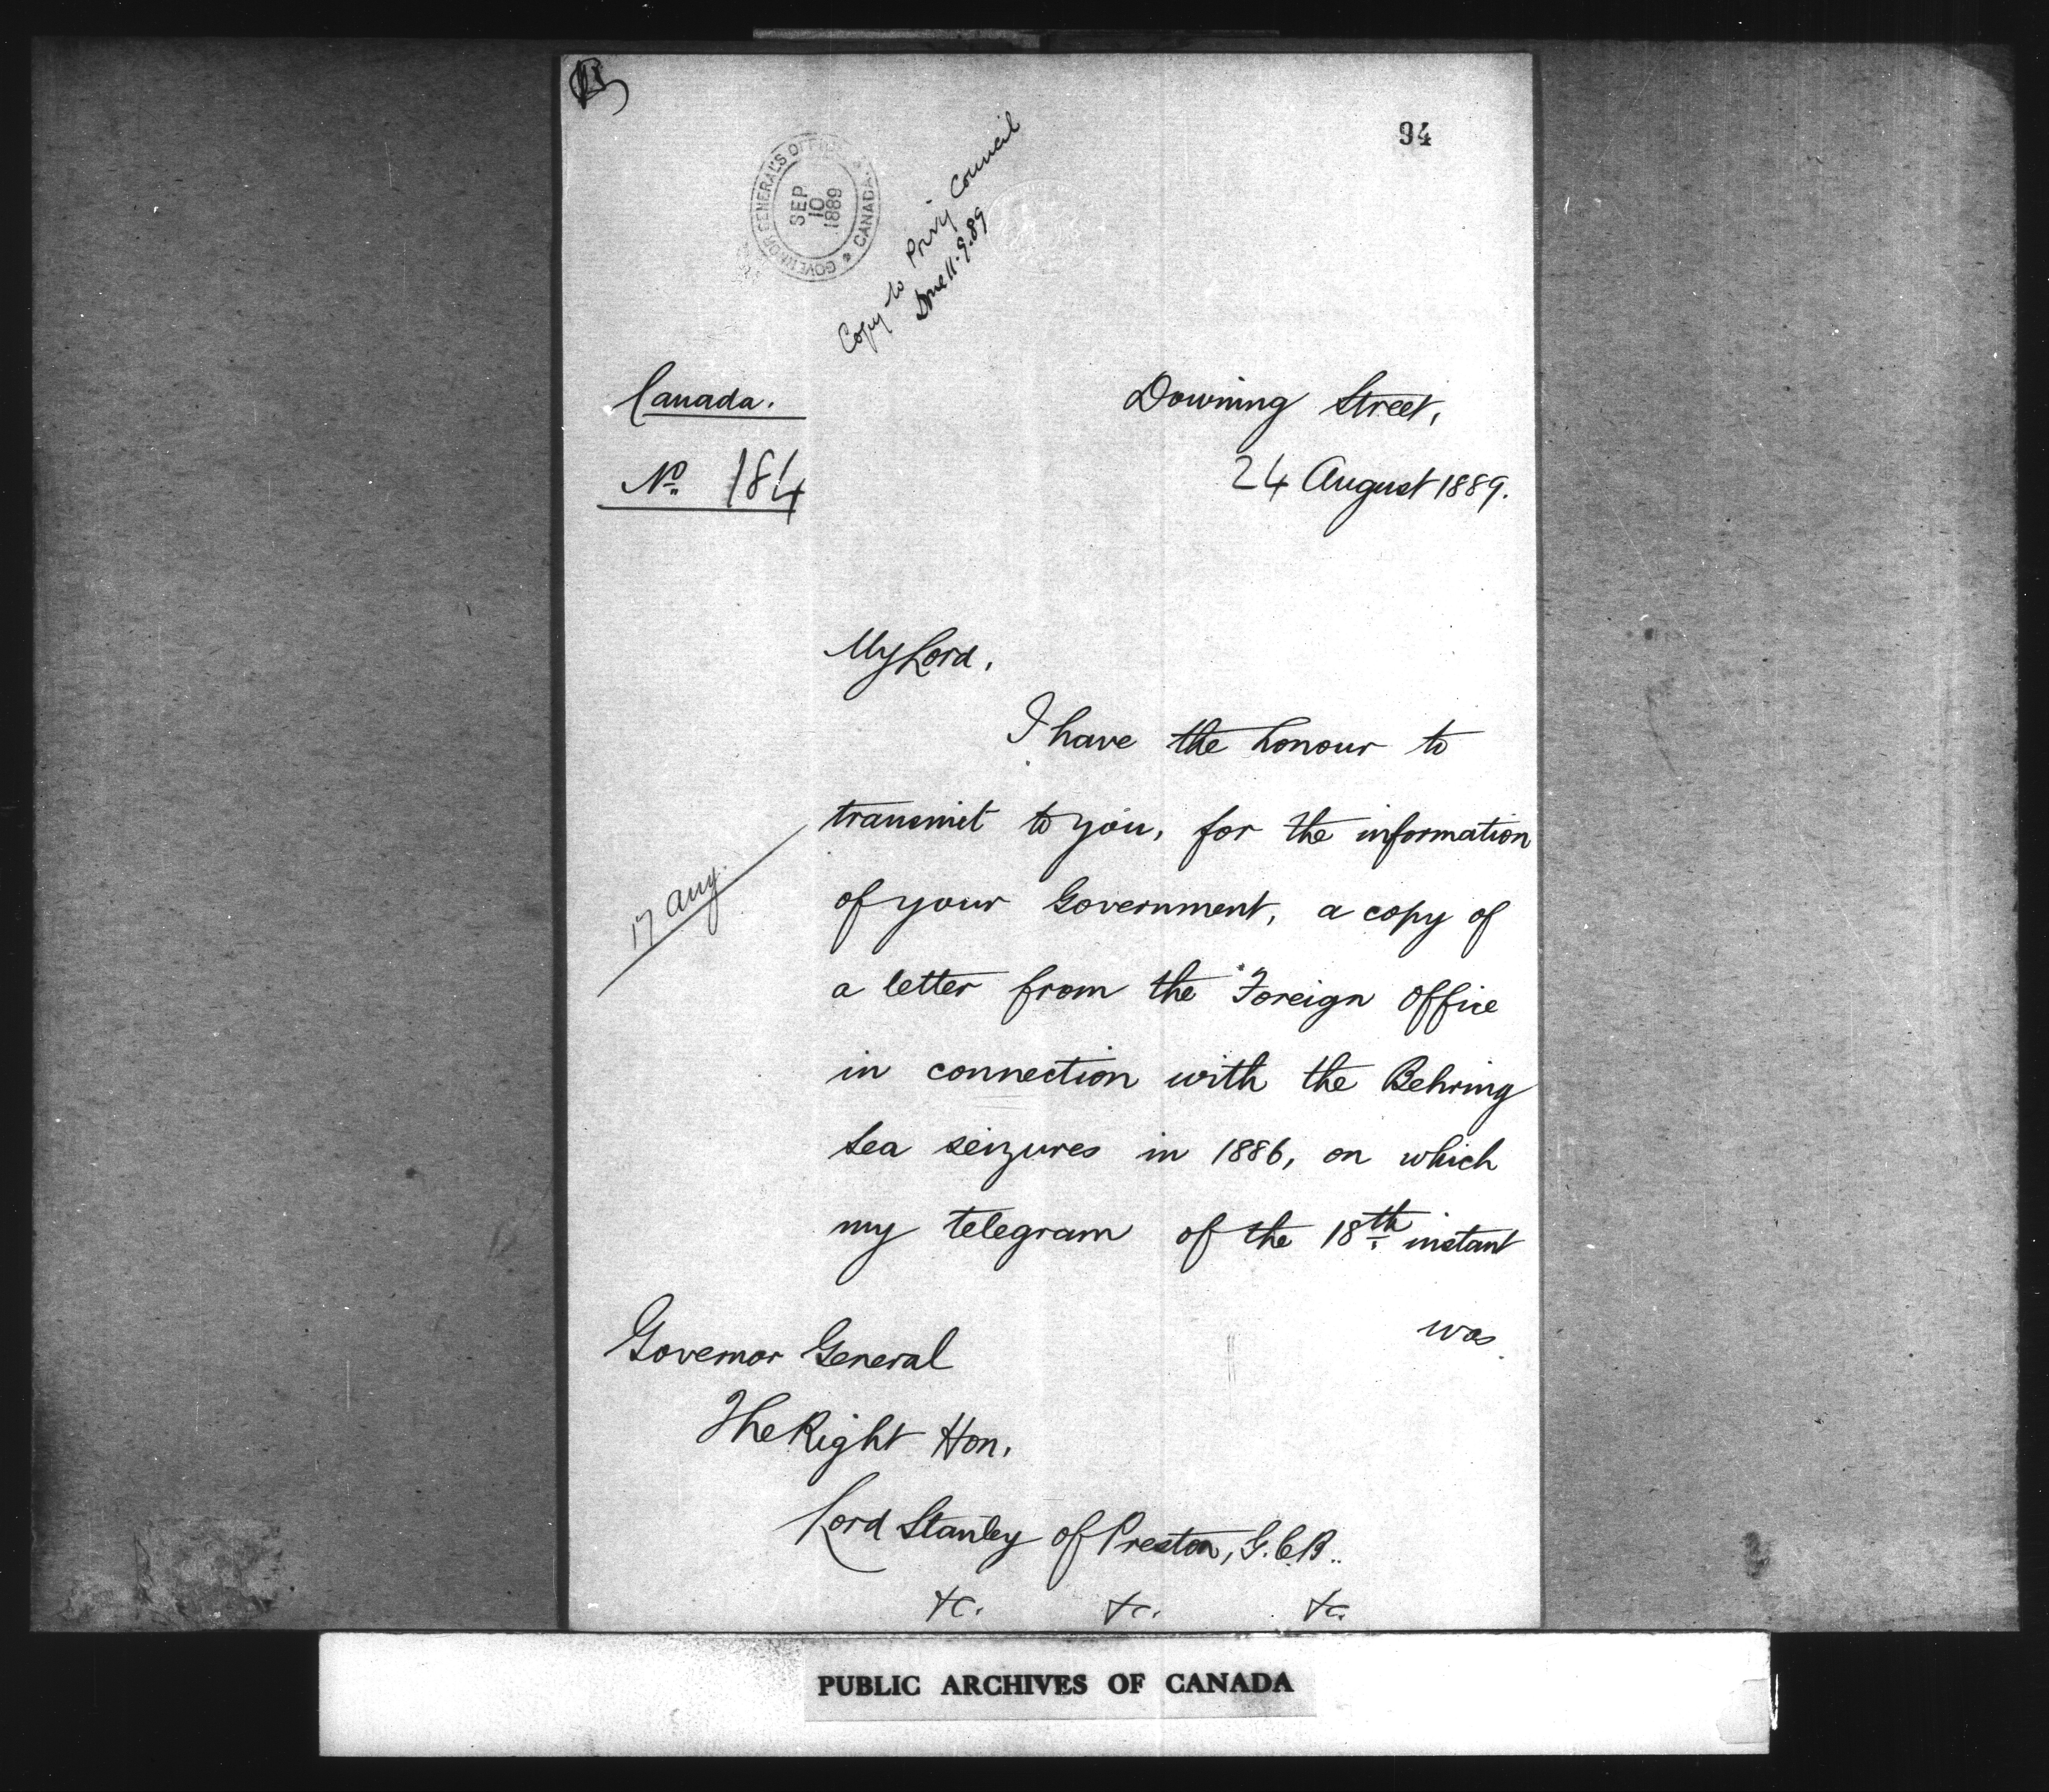 94
GOVERNOR GENERAL'S OFFICE
CANADA
SEP
10
1889
Copy to Privy Council
Done 11.9.89
Canada.
Downing Street,
No. 184
24 August 1889.
My Lord,
I have the honour to
transmit to you, for the information
17 Aug.
of your Government, a copy of
a letter from the Foreign Office
in connection with the Behring
Sea seizures in 1886, on which
my telegram of the 18th instant
was
Governor General
The Right Hon.
Lord Stanley of Preston, G.C.B..
&c. &c. &c.
PUBLIC ARCHIVES OF CANADA